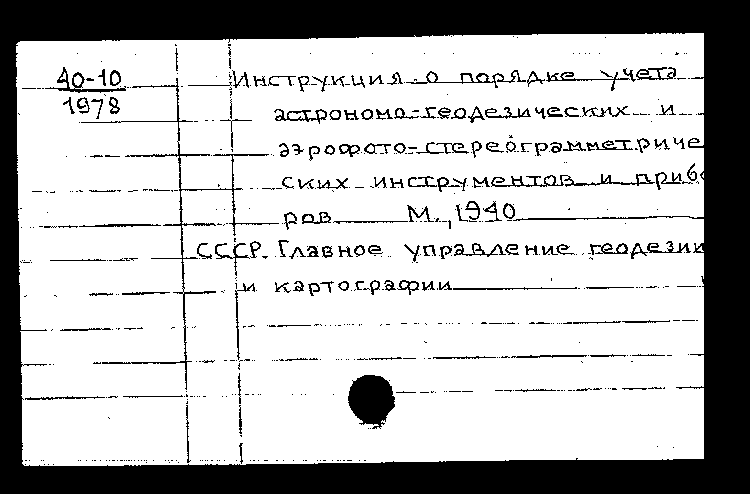 40-10
1978
Инструкция о порядке учета
астрономо-геодезических и
аэрофото-стереограмметриче
ских инструментов и прибо
ров М., 1940
СССР. Главное управление геодезии
и картографии